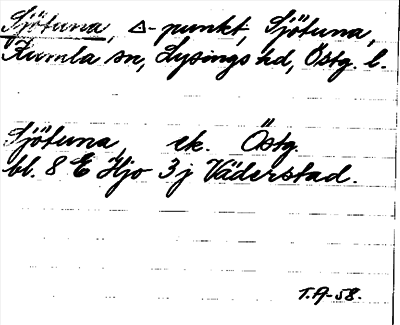 Sjötuna, △-punkt, Sjötuna,
Kumla sn, Lysings hd, Östg. l.
Sjötuna, ek. Östg.
bl. 8 E Hjo 3 j Väderstad.
T.A-58.